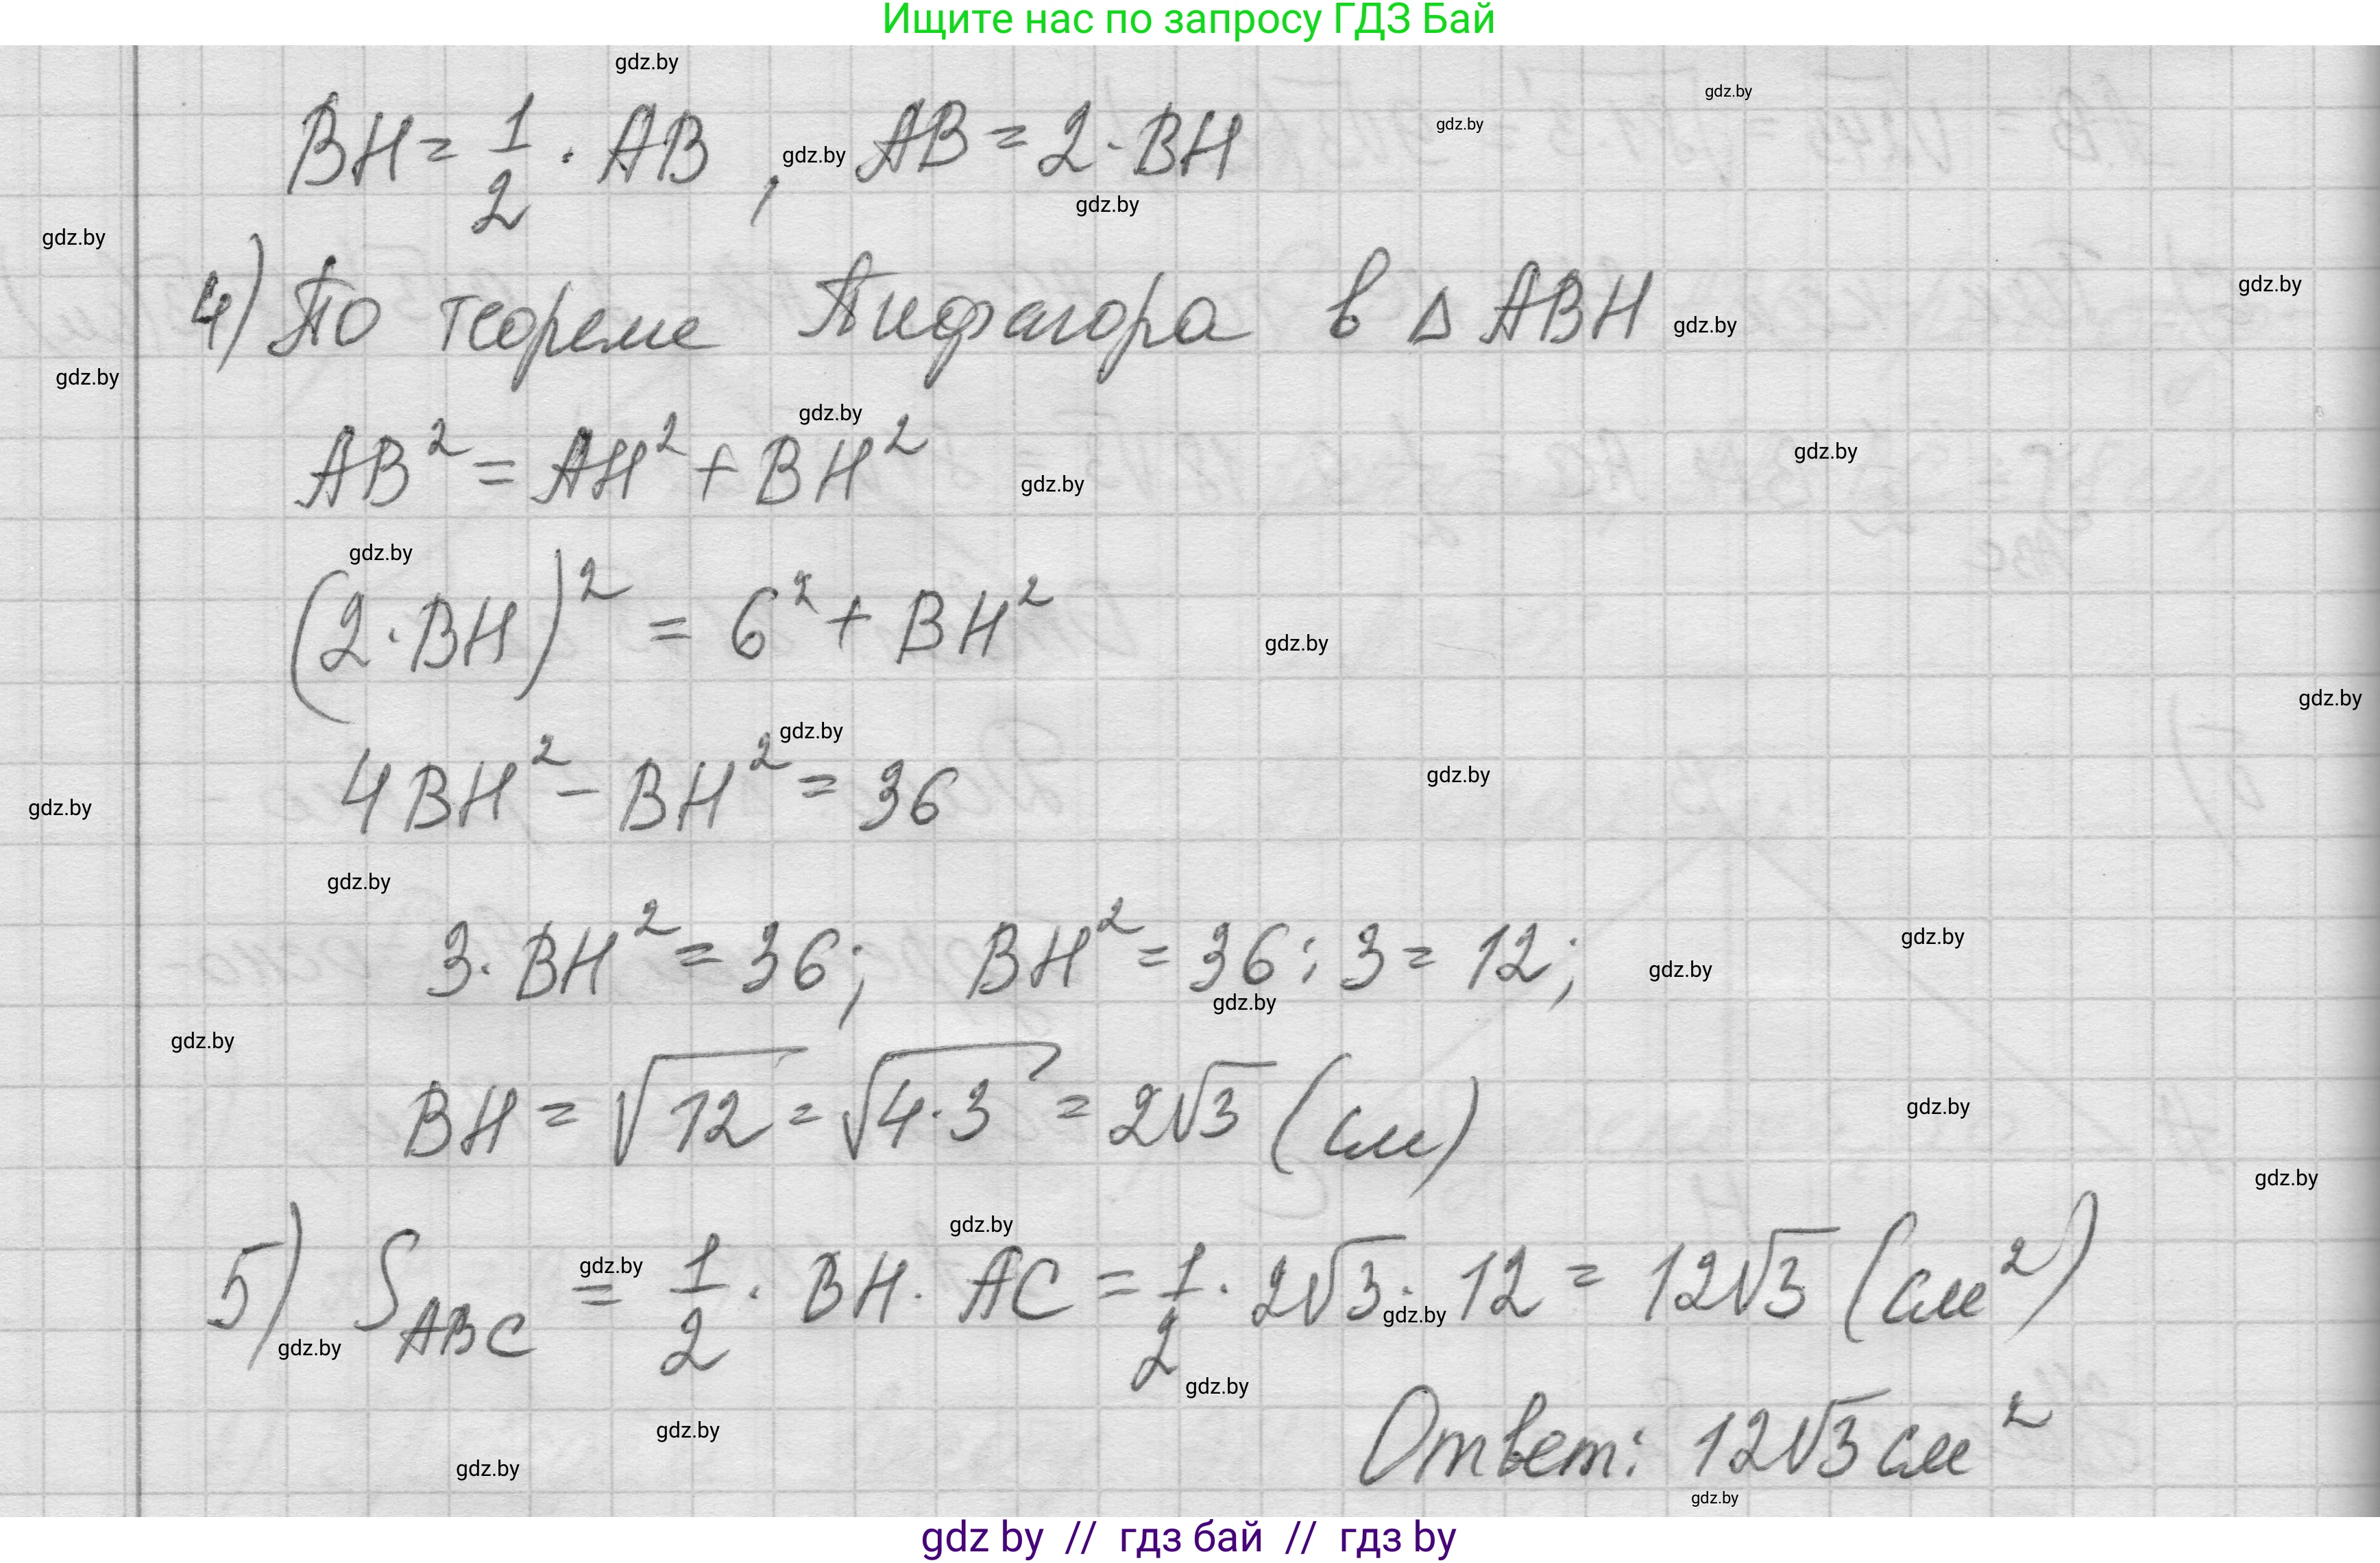 Ищите нас по запросу ГДЗ Бай
BH = 1/2 · AB , AB = 2 · BH
4) По теореме Пифагора в △ ABH
AB² = AH² + BH²
(2·BH)² = 6² + BH²
4BH² - BH² = 36
3·BH² = 36; BH² = 36 : 3 = 12;
BH = √12 = √4·3 = 2√3 (см)
5) S ABC = 1/2 · BH · AC = 1/2 · 2√3 · 12 = 12√3 (см²)
Ответ: 12√3 см²
gdz by // гдз бай // гдз by